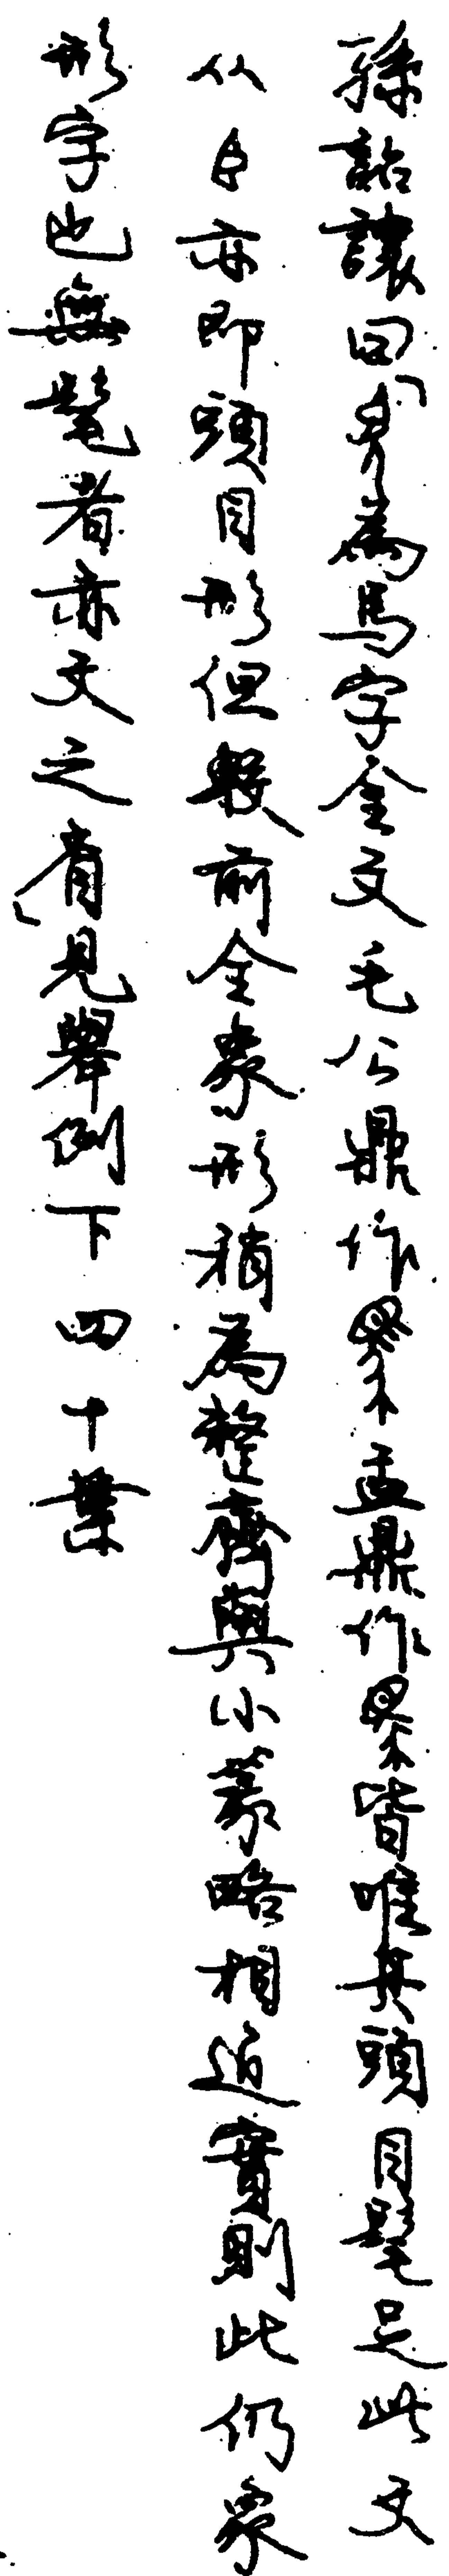 孫詒讓曰「為馬字金文毛公鼎作盂鼎作皆唯具頭目髦足此文
从亦即頭目形但較前全象形稍為整齊與小篆略相近實則此仍象
形字也無髦者亦文之省」見舉例下四十葉